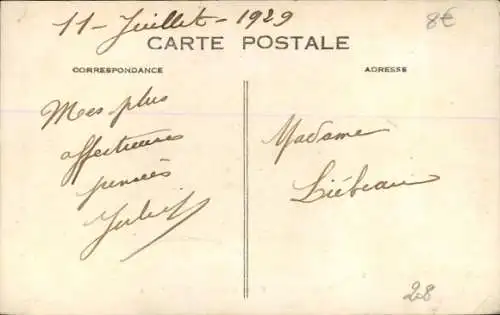 11 - Juillet - 1929
8€
CARTE POSTALE
CORRESPONDANCE
ADRESSE
Mes plus
affectueuses
pensées
Madame
Liébeau
28